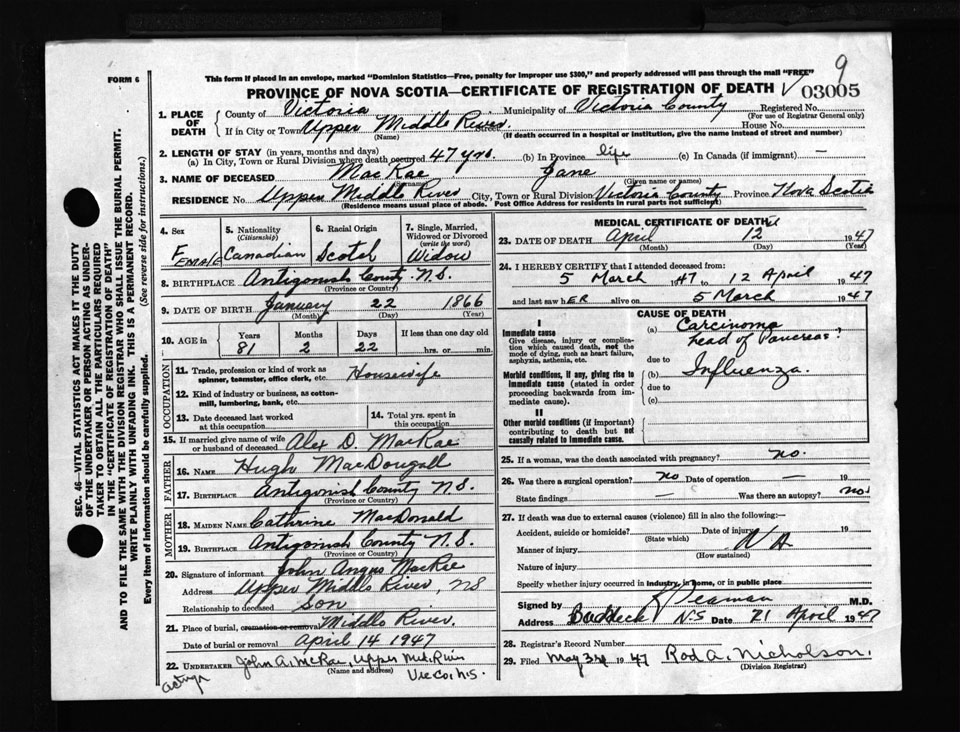 9
FORM 6
This form if placed in an envelope, marked "Dominion Statistics—Free, penalty for improper use $300," and properly addressed will pass through the mail "FREE"
PROVINCE OF NOVA SCOTIA—CERTIFICATE OF REGISTRATION OF DEATH
03005
1. PLACE OF DEATH
County of Victoria Municipality of Victoria County Registered No.
(For use of Registrar General only)
If in City or Town Upper Middle River House No.
(Name) (If death occurred in a hospital or institution, give the name instead of street and number)
2. LENGTH OF STAY (in years, months and days)
(a) In City, Town or Rural Division where death occurred 47 yrs. (b) In Province life (c) In Canada (if immigrant) —
3. NAME OF DECEASED MacRae Jane
(Surname) (Given name or names)
RESIDENCE No. Upper Middle River City, Town or Rural Division Victoria County Province Nova Scotia
(Residence means usual place of abode. Post Office Address for residents in rural parts not sufficient)
4. Sex Female
5. Nationality (Citizenship) Canadian
6. Racial Origin Scotch
7. Single, Married, Widowed or Divorced (write the word) Widow
8. BIRTHPLACE Antigonish County N.S.
(Province or Country)
9. DATE OF BIRTH January 22 1866
(Month) (Day) (Year)
10. AGE in Years Months Days If less than one day old
81 2 22 hrs. or min.
OCCUPATION
11. Trade, profession or kind of work as spinner, teamster, office clerk, etc. Housewife
12. Kind of industry or business, as cotton-mill, lumbering, bank, etc.
13. Date deceased last worked at this occupation
14. Total yrs. spent in this occupation
15. If married give name of wife or husband of deceased Alex D. MacRae
FATHER
16. NAME Hugh MacDougall
17. BIRTHPLACE Antigonish County N.S.
(Province or Country)
MOTHER
18. MAIDEN NAME Cathrine MacDonald
19. BIRTHPLACE Antigonish County N.S.
(Province or Country)
20. Signature of informant John Angus MacRae
Address Upper Middle River, NS
Relationship to deceased Son
21. Place of burial, cremation or removal Middle River.
Date of burial or removal April 14 1947
22. UNDERTAKER John A. McRae, Upper Mid. River
(Name and address) Vic Co, N.S.
MEDICAL CERTIFICATE OF DEATH
23. DATE OF DEATH April 12 1947
(Month) (Day) (Year)
24. I HEREBY CERTIFY that I attended deceased from:
5 March 1947 to 12 April 1947
and last saw hER alive on 5 March 1947
CAUSE OF DEATH
I
Immediate cause
Give disease, injury or complication which caused death, not the mode of dying, such as heart failure, asphyxia, asthenia, etc.
(a) Carcinoma head of Pancreas?
due to
Morbid conditions, if any, giving rise to immediate cause (stated in order proceeding backwards from immediate cause).
(b) Influenza.
due to
(c)
II
Other morbid conditions (if important) contributing to death but not causally related to immediate cause.
25. If a woman, was the death associated with pregnancy? no.
26. Was there a surgical operation? no Date of operation — 19
State findings — Was there an autopsy? no
27. If death was due to external causes (violence) fill in also the following:—
Accident, suicide or homicide? Date of injury 19
(State which)
Manner of injury NA
(How sustained)
Nature of injury
Specify whether injury occurred in industry, in home, or in public place
Signed by M.D.
Address Baddeck N.S Date 21 April 1947
28. Registrar's Record Number
29. Filed May 3rd 1947 Rod A. Nicholson.
(Division Registrar)
SEC. 46—VITAL STATISTICS ACT MAKES IT THE DUTY
OF THE UNDERTAKER OR PERSON ACTING AS UNDER-
TAKER TO OBTAIN ALL THE PARTICULARS REQUIRED
IN THE "CERTIFICATE OF REGISTRATION OF DEATH"
AND TO FILE THE SAME WITH THE DIVISION REGISTRAR WHO SHALL ISSUE THE BURIAL PERMIT.
WRITE PLAINLY WITH UNFADING INK. THIS IS A PERMANENT RECORD.
Every item of information should be carefully supplied. (See reverse side for instructions.)